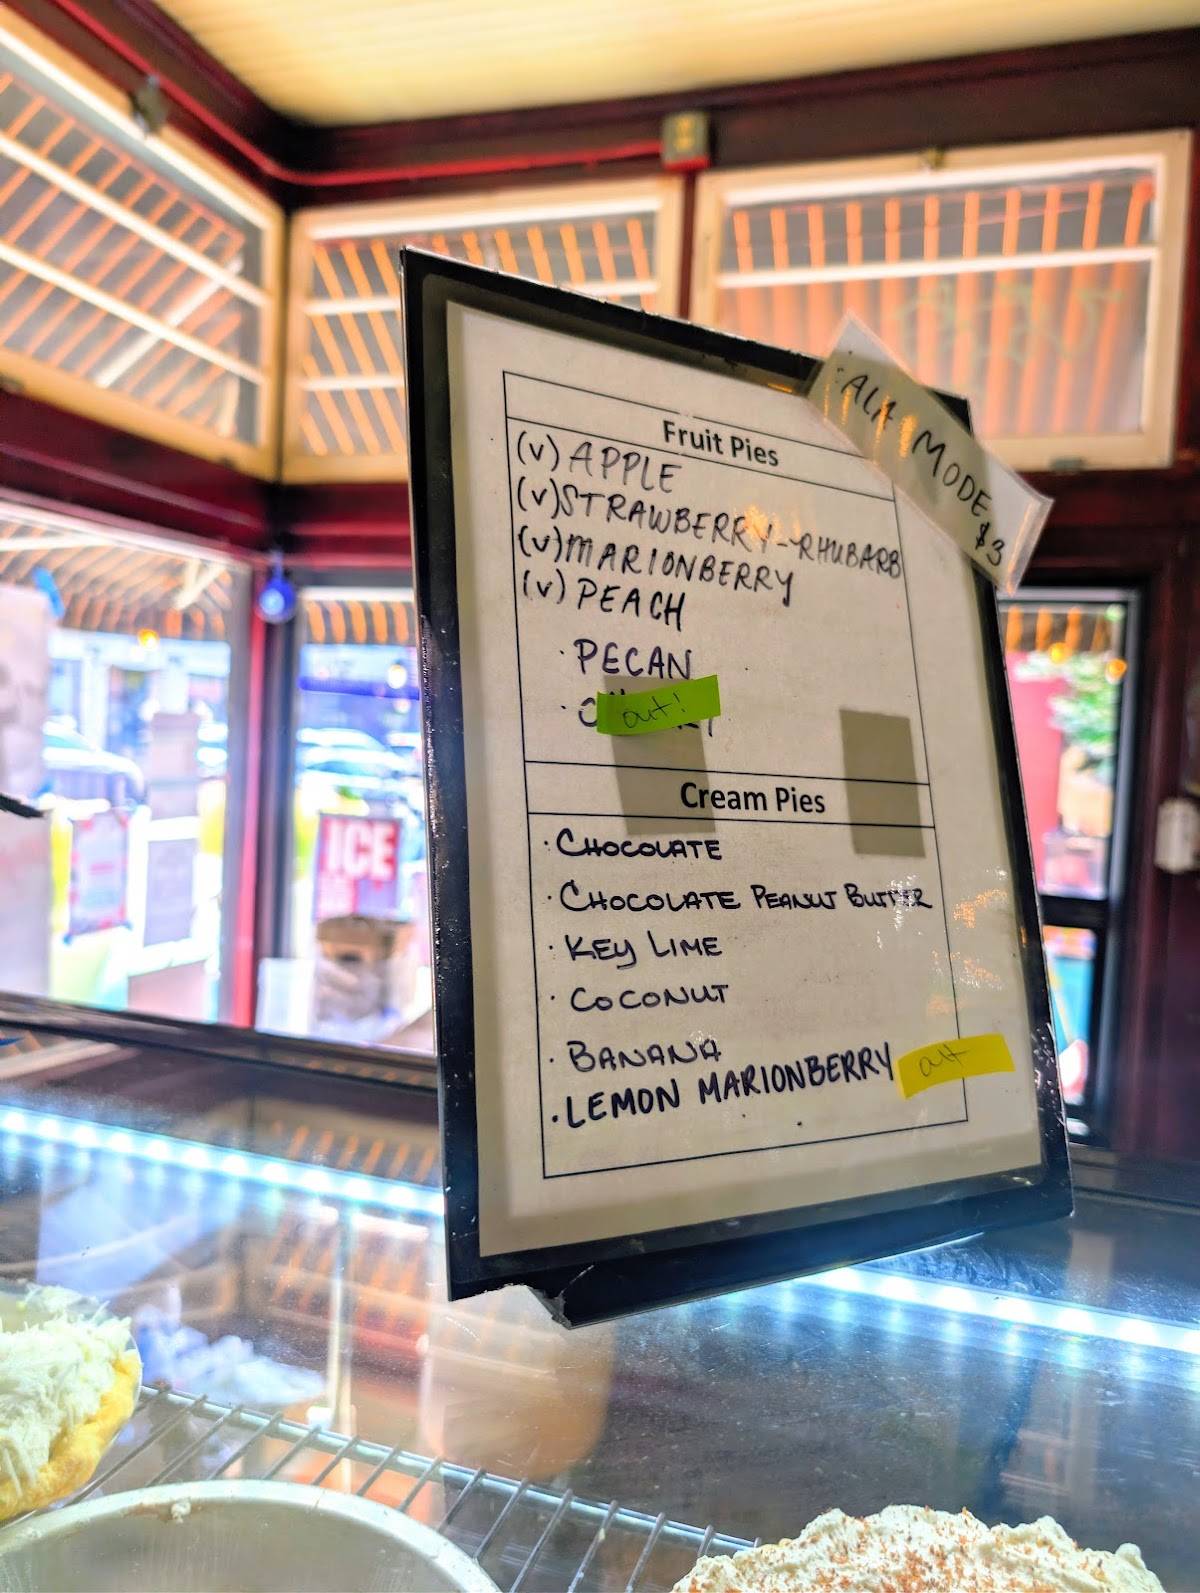 ALA MODE $3
Fruit Pies
(v) APPLE
(v) STRAWBERRY-RHUBARB
(v) MARIONBERRY
(v) PEACH
· PECAN
· out!
Cream Pies
· CHOCOLATE
· CHOCOLATE PEANUT BUTTER
· KEY LIME
· COCONUT
· BANANA
· LEMON MARIONBERRY out
ICE